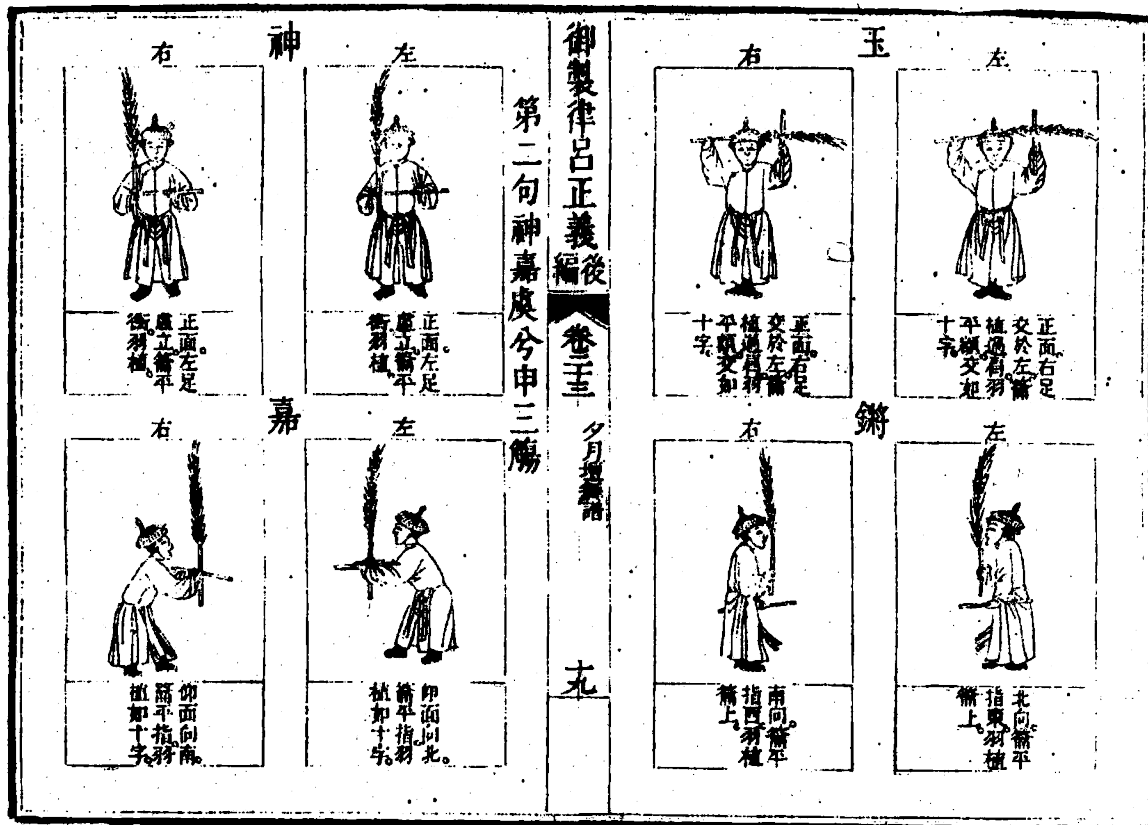 玉
左
正面。右足
交於左。籥
植過肩。羽
平額交如
十字。
右
正面。右足
交於左。籥
植過肩。羽
平額交如
十字。
鏘
左
北向。籥平
指東。羽植
籥上。
右
南向。籥平
指西。羽植
籥上。
御製律呂正義後編
卷三十三
夕月壇舞譜
十九
第二句神嘉虞兮申三觴
神
左
正面。左足
虛立。籥平
衡。羽植。
右
正面。左足
虛立。籥平
衡。羽植。
嘉
左
仰面向北。
籥平指。羽
植如十字。
右
仰面向南。
籥平指。羽
植如十字。